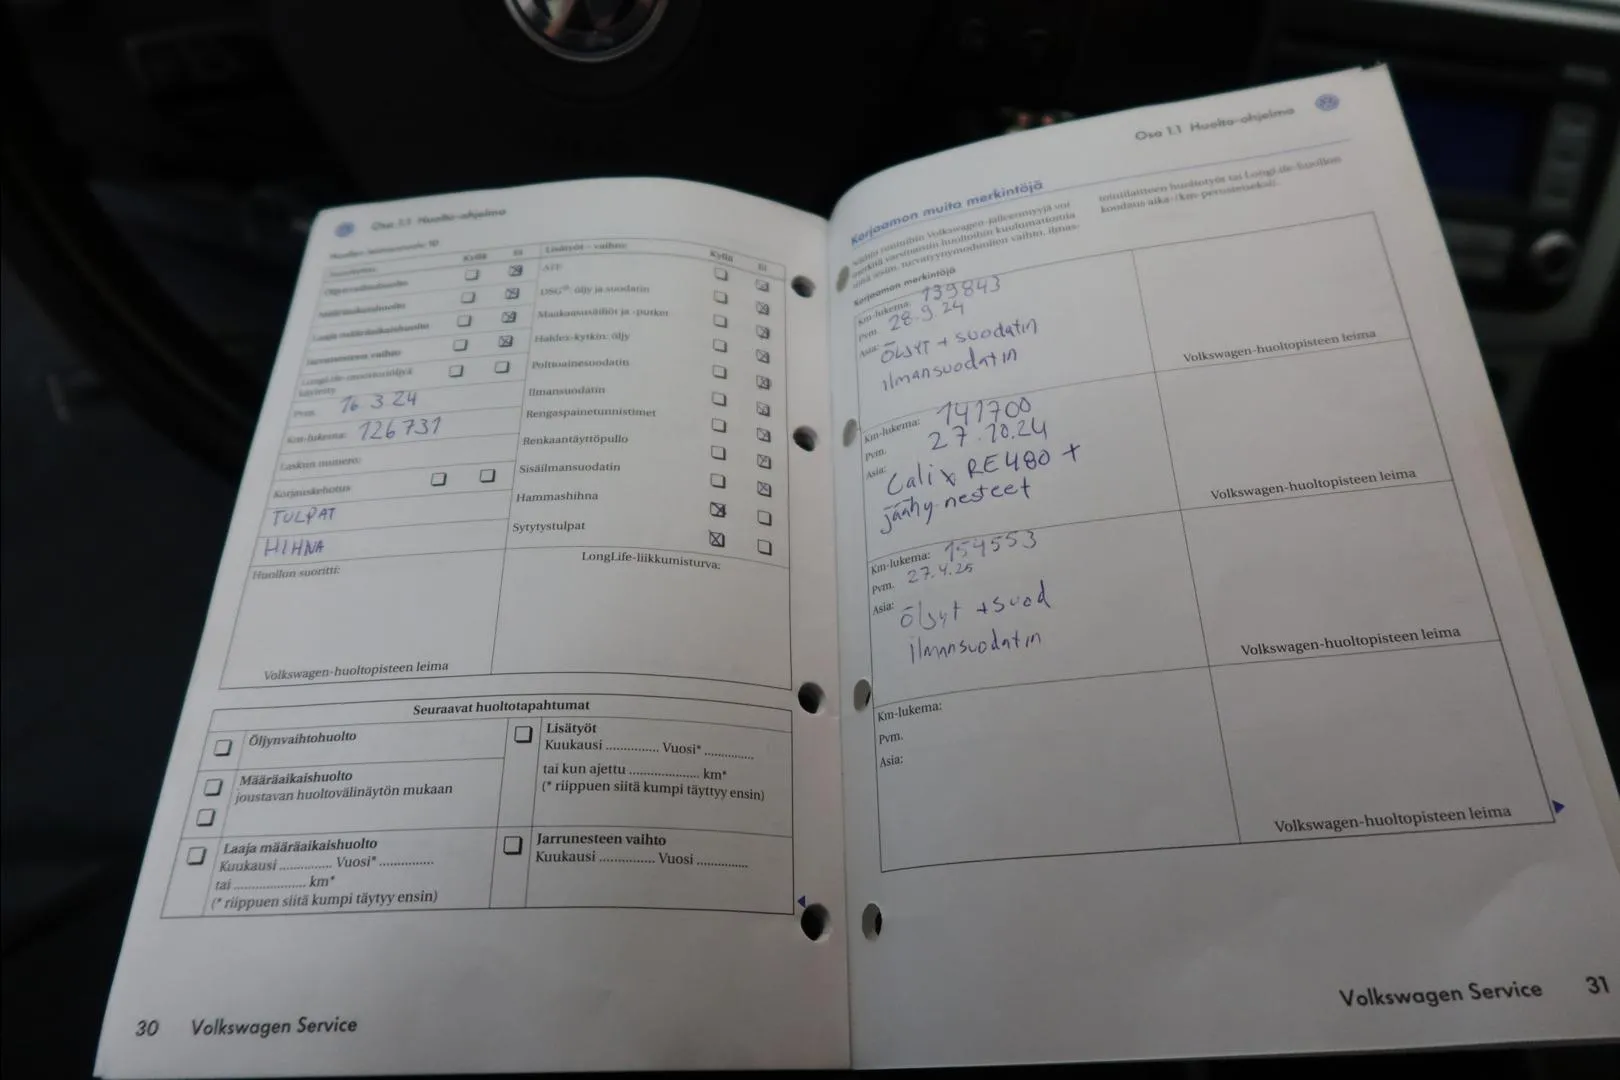 Osa 1.1 Huolto-ohjelma
Kyllä Ei
Öljynvaihtohuolto
Määräaikaishuolto
Laaja määräaikaishuolto
Jarrunesteen vaihto
Pvm. 16 3 24
Km-lukema: 126731
Laskun numero:
Korjauskehotus
TULPAT
HIHNA
Huollon suoritti:
Volkswagen-huoltopisteen leima
Lisätyöt - vaihto: Kyllä Ei
ATF
DSG®: öljy ja suodatin
Maakaasusäiliöt ja -putket
Haldex-kytkin: öljy
Polttoainesuodatin
Ilmansuodatin
Rengaspainetunnistimet
Renkaantäyttöpullo
Sisäilmansuodatin
Hammashihna
Sytytystulpat
LongLife-liikkumisturva:
Seuraavat huoltotapahtumat
Öljynvaihtohuolto
Määräaikaishuolto
joustavan huoltovälinäytön mukaan
Laaja määräaikaishuolto
Kuukausi ............. Vuosi* ..............
tai ................... km*
(* riippuen siitä kumpi täytyy ensin)
Lisätyöt
Kuukausi .............. Vuosi* .............
tai kun ajettu .................. km*
(* riippuen siitä kumpi täyttyy ensin)
Jarrunesteen vaihto
Kuukausi .............. Vuosi .............
30 Volkswagen Service
Osa 1.1 Huolto-ohjelma
Korjaamon muita merkintöjä
Korjaamon merkintöjä
Km-lukema: 139843
Pvm. 28.9.24
Asia: ÖLJYT + SUODATIN
ilmansuodatin
Volkswagen-huoltopisteen leima
Km-lukema: 141700
Pvm. 27.10.24
Asia: Calix RE480 +
jäähy.nesteet
Volkswagen-huoltopisteen leima
Km-lukema: 154553
Pvm. 27.4.25
Asia: öljyt + suod
ilmansuodatin
Volkswagen-huoltopisteen leima
Km-lukema:
Pvm.
Asia:
Volkswagen-huoltopisteen leima
Volkswagen Service 31